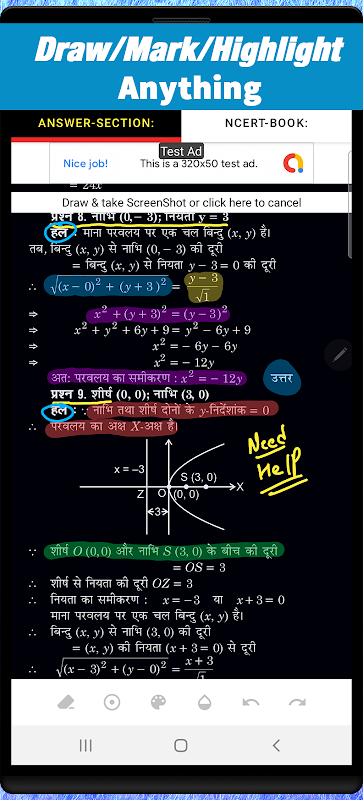 Draw/Mark/Highlight
Anything
ANSWER-SECTION: NCERT-BOOK:
Test Ad
Nice job! This is a 320x50 test ad.
= 24x
Draw & take ScreenShot or click here to cancel
प्रश्न 8. नाभि (0, – 3); नियता y = 3
हल : माना परवलय पर एक चल बिन्दु (x, y) है।
तब, बिन्दु (x, y) से नाभि (0, – 3) की दूरी
= बिन्दु (x, y) से नियता y – 3 = 0 की दूरी
∴ √(x – 0)² + (y + 3)² = y – 3 / √1
⇒ x² + (y + 3)² = (y – 3)²
⇒ x² + y² + 6y + 9 = y² – 6y + 9
⇒ x² = – 6y – 6y
⇒ x² = – 12y
अतः परवलय का समीकरण : x² = – 12y उत्तर
प्रश्न 9. शीर्ष (0, 0); नाभि (3, 0)
हल : ∵ नाभि तथा शीर्ष दोनों के y-निर्देशांक = 0
∴ परवलय का अक्ष X-अक्ष है।
Need
Help
x = –3
S (3, 0)
X
Z O (0, 0)
3
∵ शीर्ष O (0, 0) और नाभि S (3, 0) के बीच की दूरी
= OS = 3
∴ शीर्ष से नियता की दूरी OZ = 3
∴ नियता का समीकरण : x = –3 या x + 3 = 0
माना परवलय पर एक चल बिन्दु (x, y) है।
∴ बिन्दु (x, y) से नाभि (3, 0) की दूरी
= (x, y) की नियता (x + 3 = 0) से दूरी
∴ √(x – 3)² + (y – 0)² = x + 3 / √1